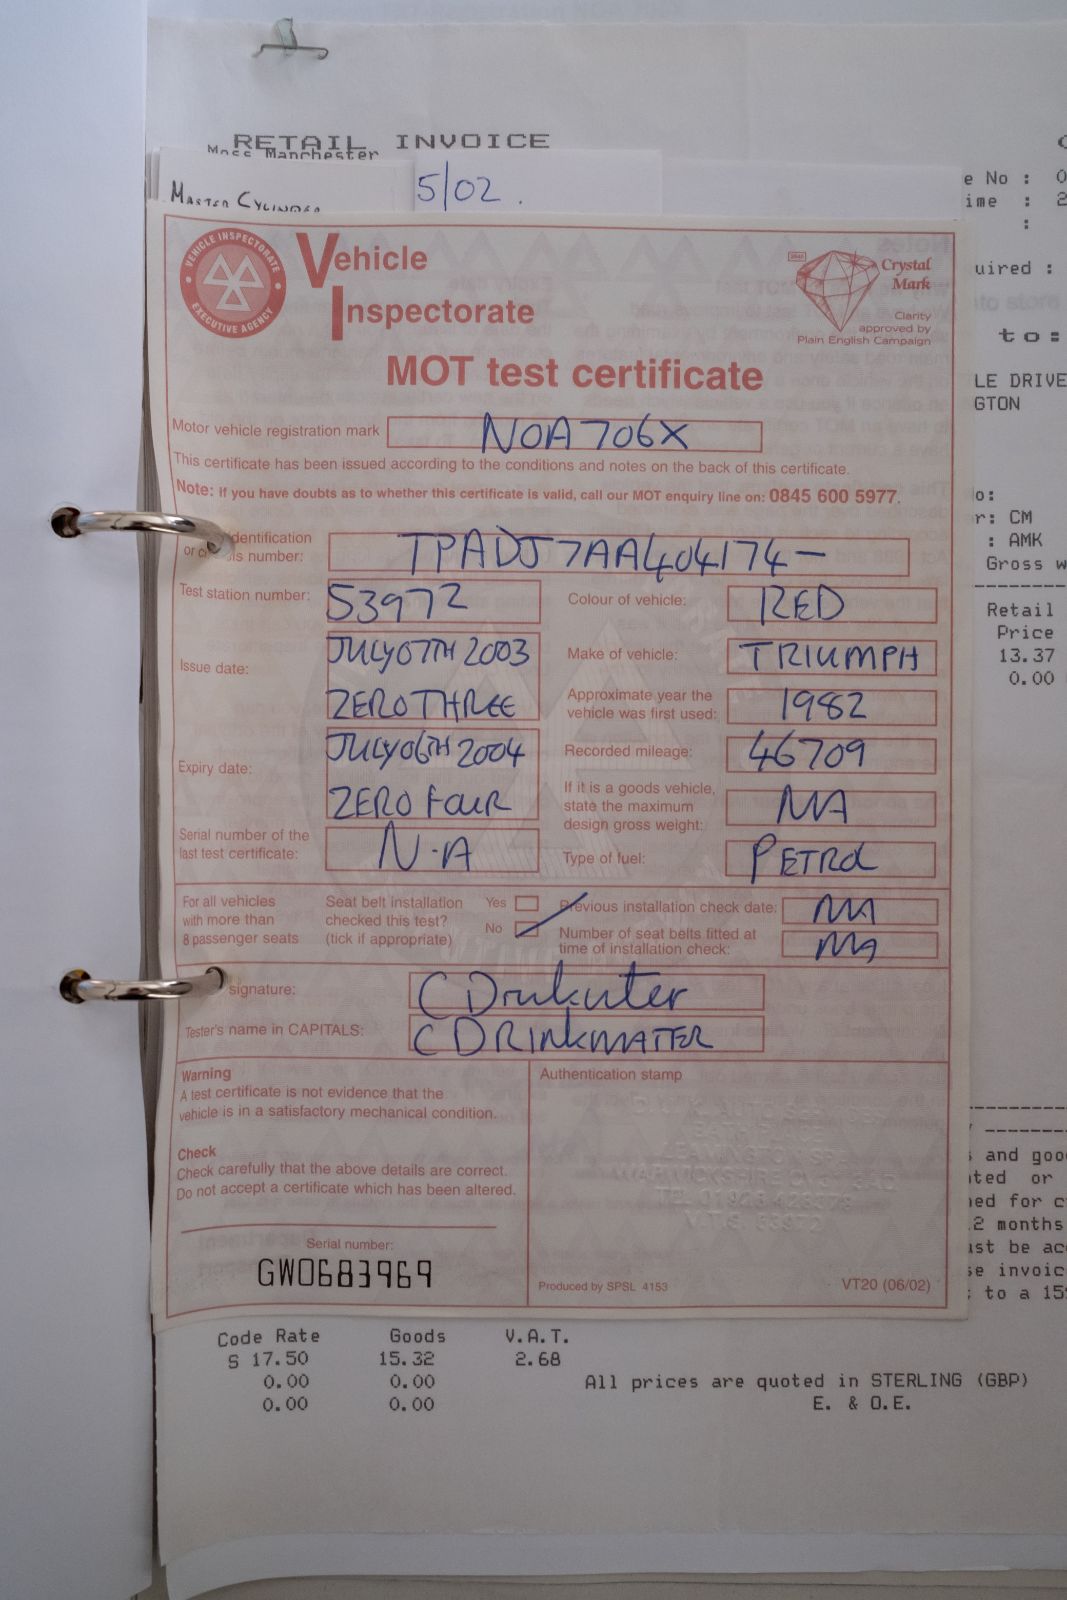 RETAIL INVOICE
Moss Manchester
MASTER CYLINDER
5/02.
e No : 0
ime : 2
:
uired :
to:
LE DRIVE
GTON
o:
r: CM
: AMK
Gross w
Retail
Price
13.37
0.00
VEHICLE INSPECTORATE
EXECUTIVE AGENCY
Vehicle
Inspectorate
Crystal
Mark
Clarity
approved by
Plain English Campaign
MOT test certificate
Motor vehicle registration mark NOA 706X
This certificate has been issued according to the conditions and notes on the back of this certificate.
Note: If you have doubts as to whether this certificate is valid, call our MOT enquiry line on: 0845 600 5977.
identification
or is number: TPADJ7AA404174-
Test station number: 53972
Colour of vehicle: RED
Issue date: JULY 07TH 2003
ZERO THREE
Make of vehicle: TRIUMPH
Approximate year the
vehicle was first used: 1982
Expiry date: JULY 06TH 2004
ZERO FOUR
Recorded mileage: 46709
If it is a goods vehicle,
state the maximum
design gross weight: NA
Serial number of the
last test certificate: N.A
Type of fuel: PETROL
For all vehicles
with more than
8 passenger seats
Seat belt installation
checked this test?
(tick if appropriate)
Yes
No
Previous installation check date: NA
Number of seat belts fitted at
time of installation check: NA
signature: C Drinkwater
Tester's name in CAPITALS: C DRINKWATER
Warning
A test certificate is not evidence that the
vehicle is in a satisfactory mechanical condition.
Check
Check carefully that the above details are correct.
Do not accept a certificate which has been altered.
Serial number:
GW0683969
Authentication stamp
LEAMINGTON SPA
WARWICKSHIRE CV31 3AG
V.T.S. 53972
Produced by SPSL 4153
VT20 (06/02)
s and goo
ted or
ed for c
2 months
ust be ac
se invoic
to a 15
Code Rate Goods V.A.T.
S 17.50 15.32 2.68
0.00 0.00
0.00 0.00
All prices are quoted in STERLING (GBP)
E. & O.E.